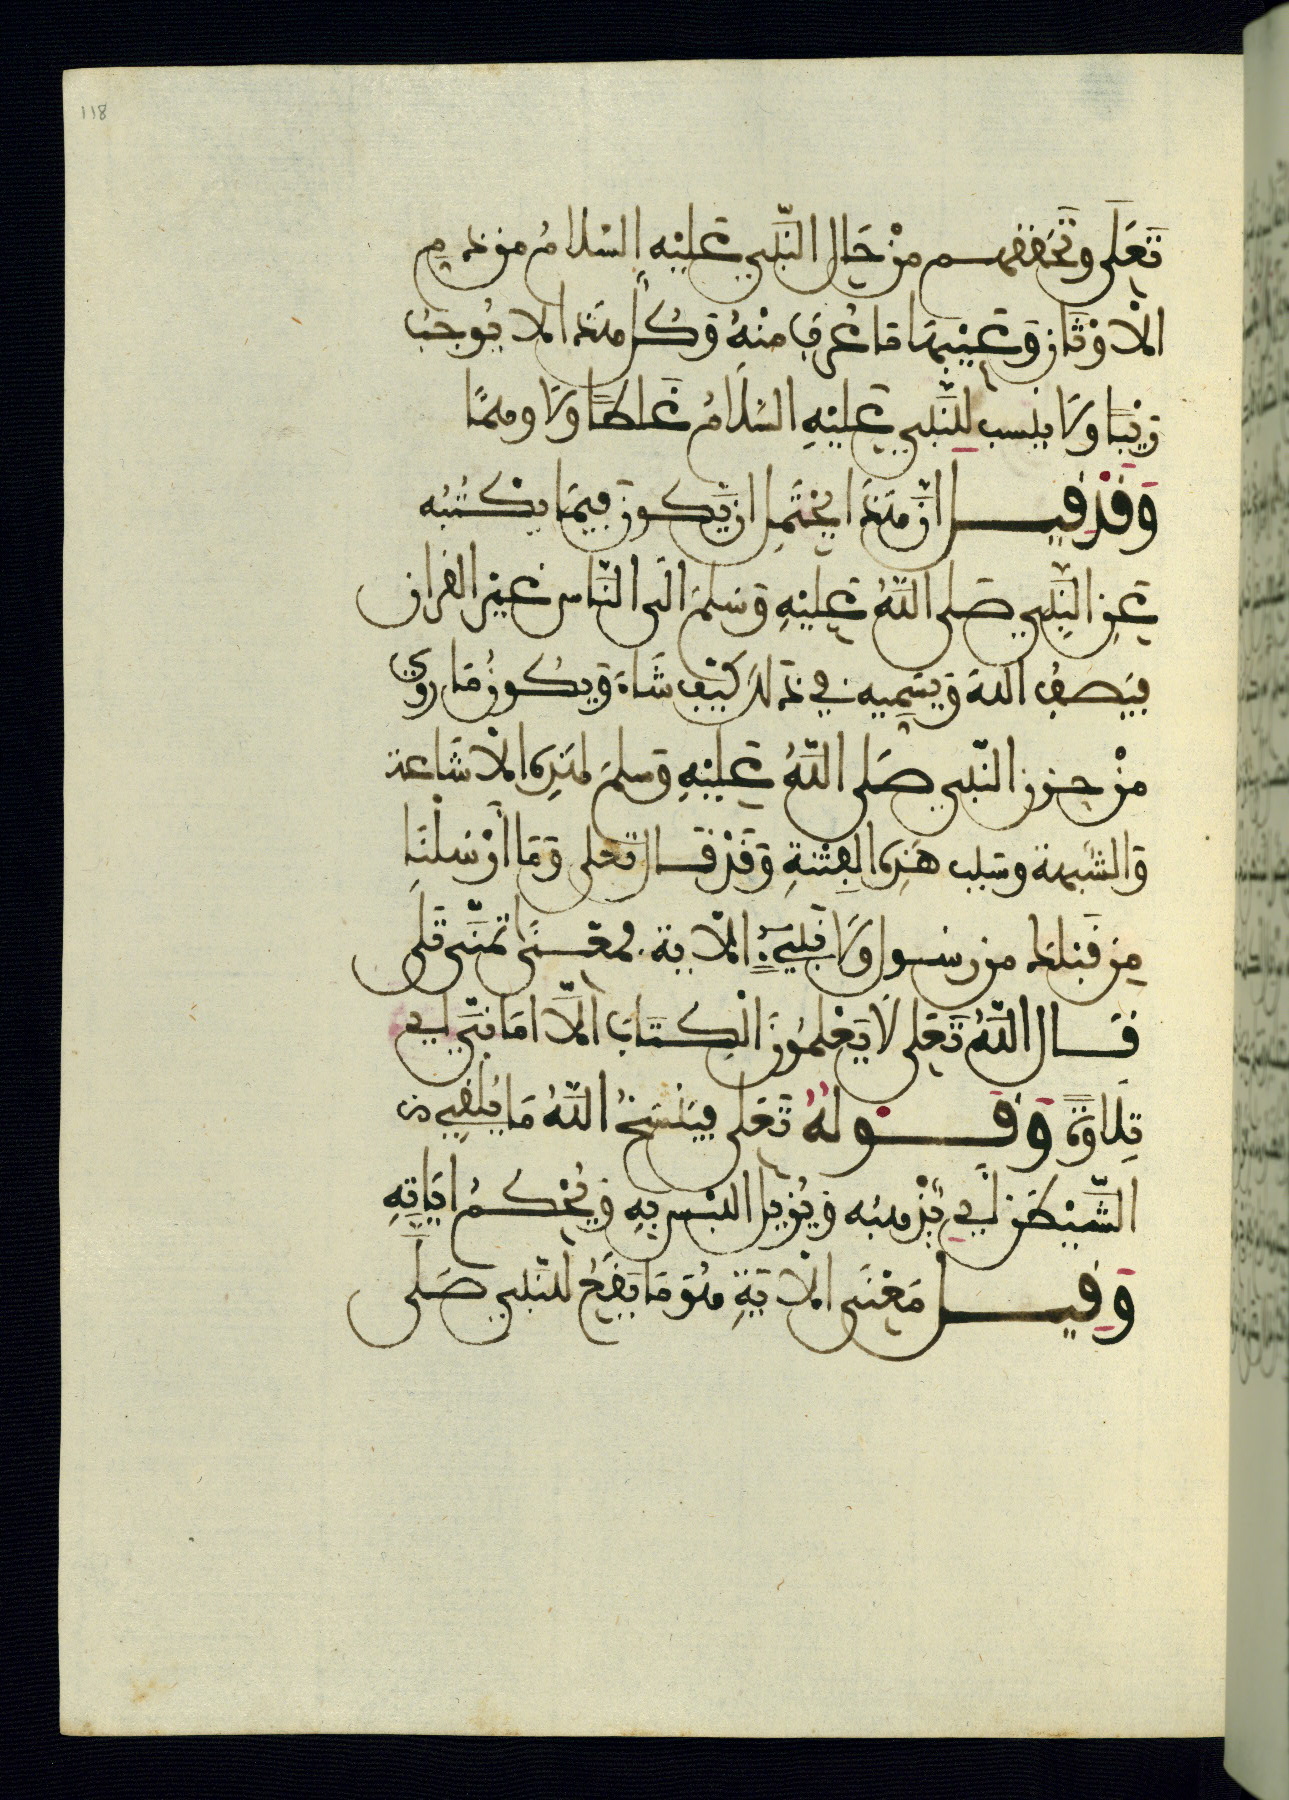 ١١٨
تَعَلَى وَتَحَفظهم مِنْ حَالِ النَّبِي عَلَيْهِ السَّلَامُ من ذم
الْأَوْثَانِ وَعَيْبِهَا مَا عُرِفَ مِنْهُ وَكُلُّ هَذَا لَا يُوجِبُ
رَيْبًا وَلَا ينسب لِلنَّبِي عَلَيْهِ السَّلَامُ غَلَطًا وَلَا وهمًا
وَقَدْ قِيل انَّ هَذَا يَحْتَمِل ان يَّكُونَ فِيمَا يَكْتُبُه
عَنِ النَّبِي صَلى اللَّهُ عَلَيْهِ وَسَلمَ الَى النَّاسِ غَيْر القران
فيَصِفُ اللهَ وَيسَمِيه في ذَلِكَ كَيْفَ شَاءَ وَيَكُونُ مَا رُوِي
مِنْ حزن النَّبِي صَلى اللَّهُ عَلَيْهِ وَسَلمَ لهَذِهِ الْاشَاعة
وَالشبهة وسَبب هَذِهِ الْفِتْنَةِ وَقَدْ قَال تعلى وَمَا أَرْسَلْنَا
مِن قَبْلِكَ من رسول وَلَا نَبِيٍّ الْآية فمعْنَى تَمَنَّى تَلَى
قَال اللَّهُ تَعَلى لَا يَعْلَمُونَ الْكِتَابَ الَّا امَانِيَّ اي
تِلَاوَةً وَقَوْلهُ تَعَلى فَيَنْسَخُ اللَّهُ مَا يُلْقِي من
الشَّيْطَن أَي يُذْهِبُه وَيُزِيل اللبْس بِهِ وَيُحْكِمُ ايَاتِهِ
وَقِيل مَعْنَى الْآيَةِ هُوَ مَا يَقَعُ لِلنَّبِي صَلَى